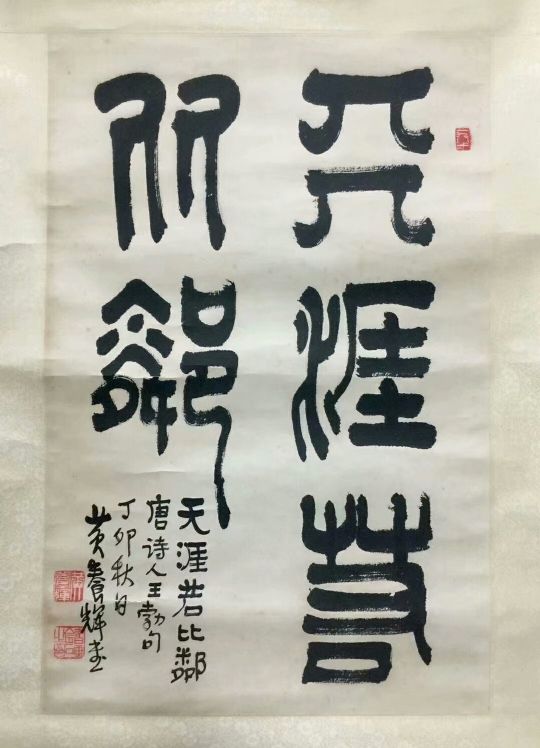 天涯若
比鄰
天涯若比鄰
唐诗人王勃句
丁卯秋日
黄養輝书